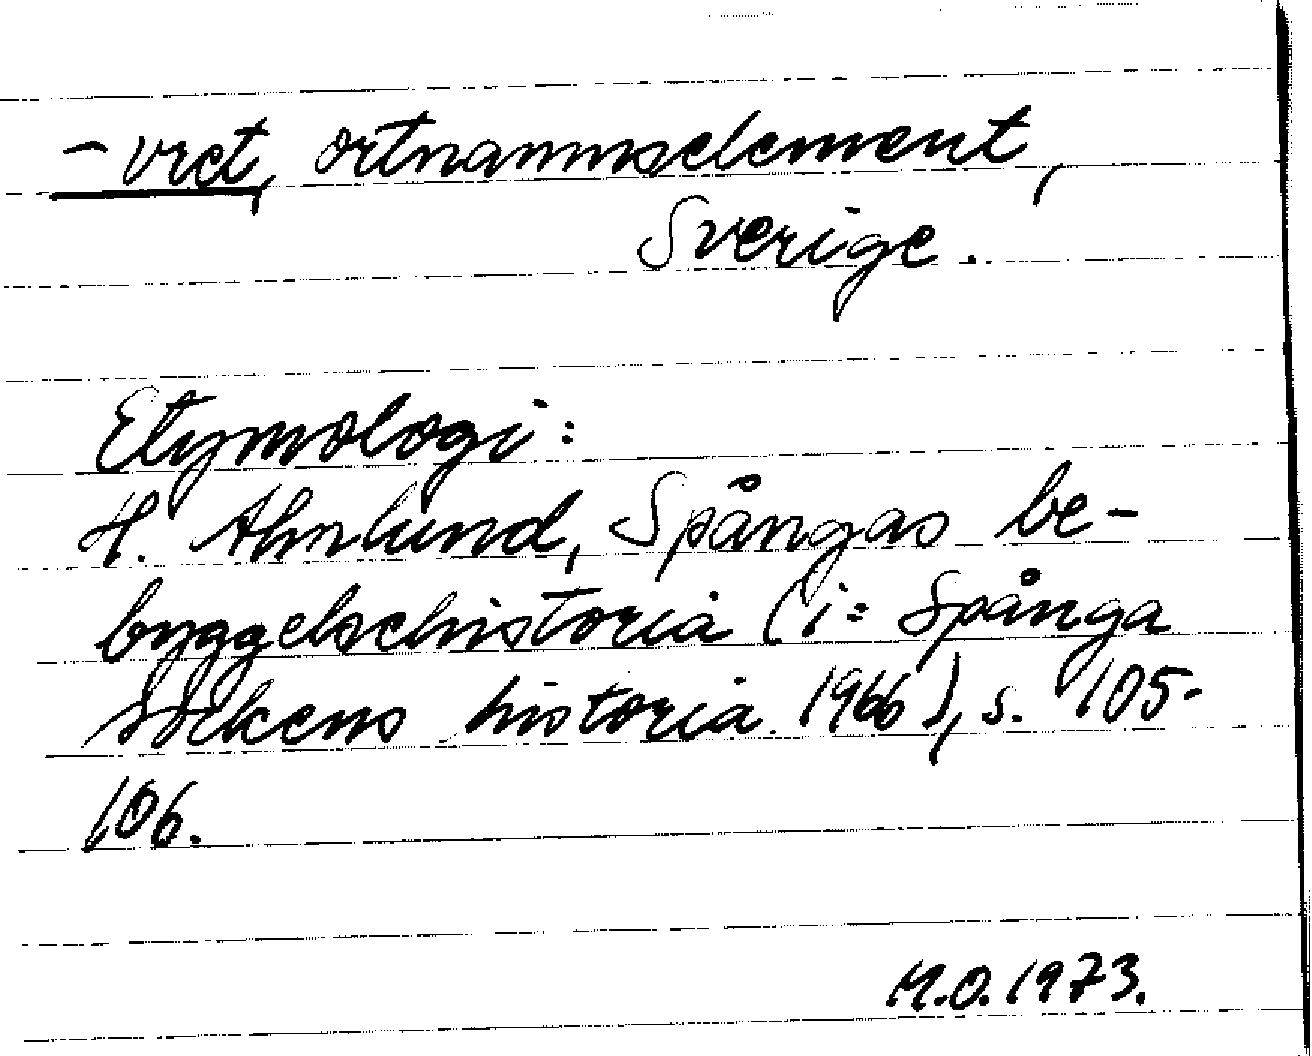 -vret, ortnamnselement,
Sverige.
Etymologi:
H. Ahnlund, Spångas be-
byggelsehistoria (i: Spånga
sockens historia. 1966), s. 105-
106.
M.O. 1973.